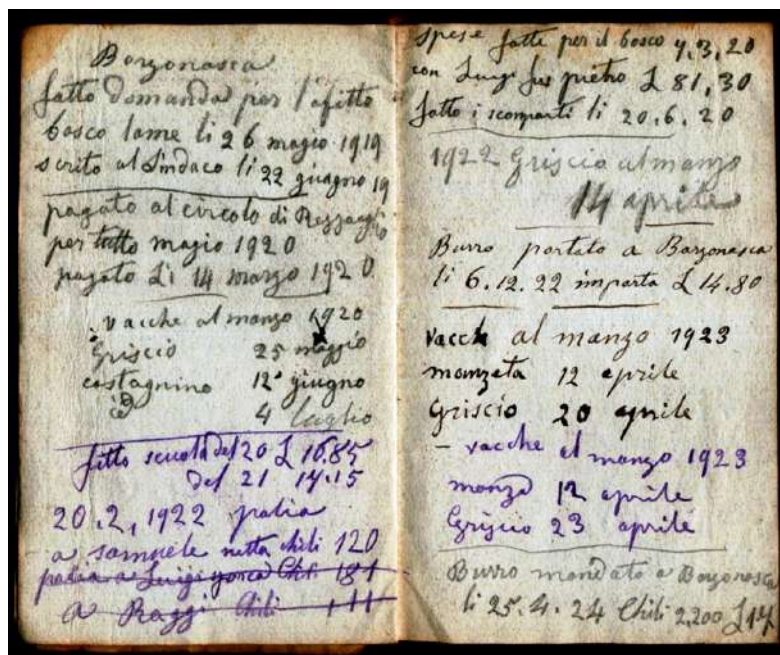 Borzonasca
fatto domanda per l'afitto
bosco lame li 26 magio 1919
scrito al Sindaco li 22 giugno 19
pagato al circolo di Rezzoaglio
per tutto magio 1920
pagato Li 14 marzo 1920
vacche al manzo 1920
Griscio 25 maggio
castagnino 12 giugno
4 luglio
fitto scuola del 20 L 16.85
del 21 14.15
20.2,1922 palia
a samuele netta chili 120
palia a Luigi Chi. 181
a Raggi Chili 111
spese fatte per il bosco 9.3.20
con Luigi fu pietro L 81,30
fatto i scomparti li 20.6.20
1922 Griscio al manzo
14 aprile
Burro portato a Borzonasca
li 6.12.22 importa L 14.80
vacche al manzo 1923
manzeta 12 aprile
Griscio 20 aprile
- vacche al manzo 1923
manza 12 aprile
Griscio 23 aprile
Burro mandato a Borzonasca
li 25.4.24 Chili 2,200